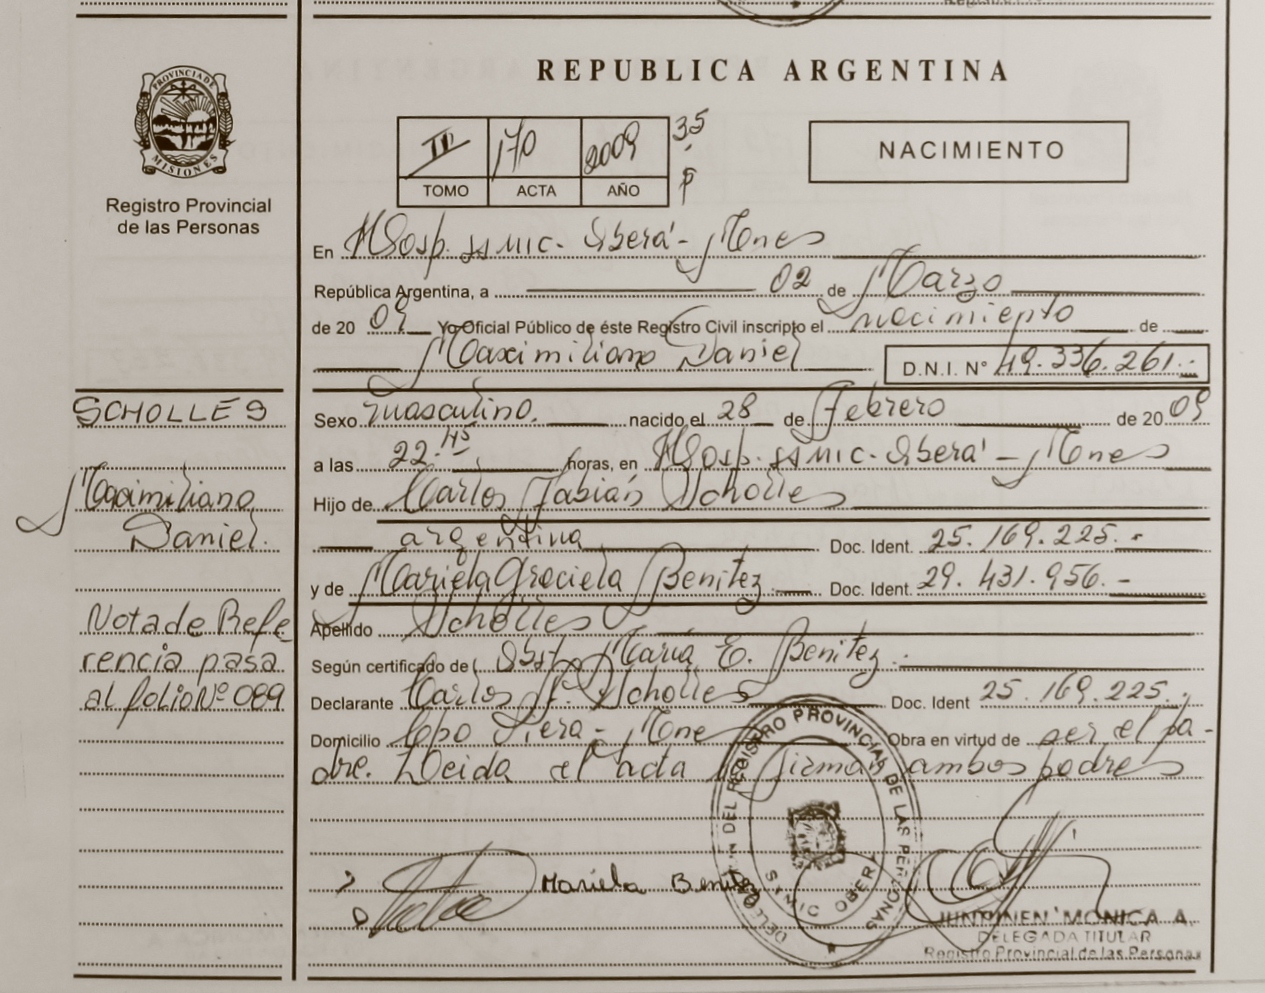 REPUBLICA ARGENTINA
PROVINCIA DE MISIONES
Registro Provincial
de las Personas
III 170 2009 35
TOMO ACTA AÑO
NACIMIENTO
En Hosp. SAMIC - Oberá - Mnes
República Argentina, a 02 de Marzo
de 20 09 Yo Oficial Público de éste Registro Civil inscripto el nacimiento de
Maximiliano Daniel D.N.I. Nº 49.336.261.-
SCHOLLES
Maximiliano
Daniel.
Nota de Refe
rencia pasa
al folio Nº 089
Sexo masculino. nacido el 28 de Febrero de 20 09
a las 22.45 horas, en Hosp. SAMIC - Oberá - Mnes
Hijo de Carlos Fabián Scholles
argentina Doc. Ident. 25.169.225.-
y de Mariela Graciela Benitez Doc. Ident. 29.431.956.-
Apellido Scholles
Según certificado de Obst. María E. Benitez.
Declarante Carlos F. Scholles Doc. Ident 25.169.225.
Domicilio - Mnes Obra en virtud de ser el pa-
dre. Leida el acta firman ambos padres
Mariela Benitez
DEL REGISTRO PROVINCIAL DE LAS PERSONAS
SAMIC OBERA
MONICA A.
DELEGADA TITULAR
Registro Provincial de las Personas